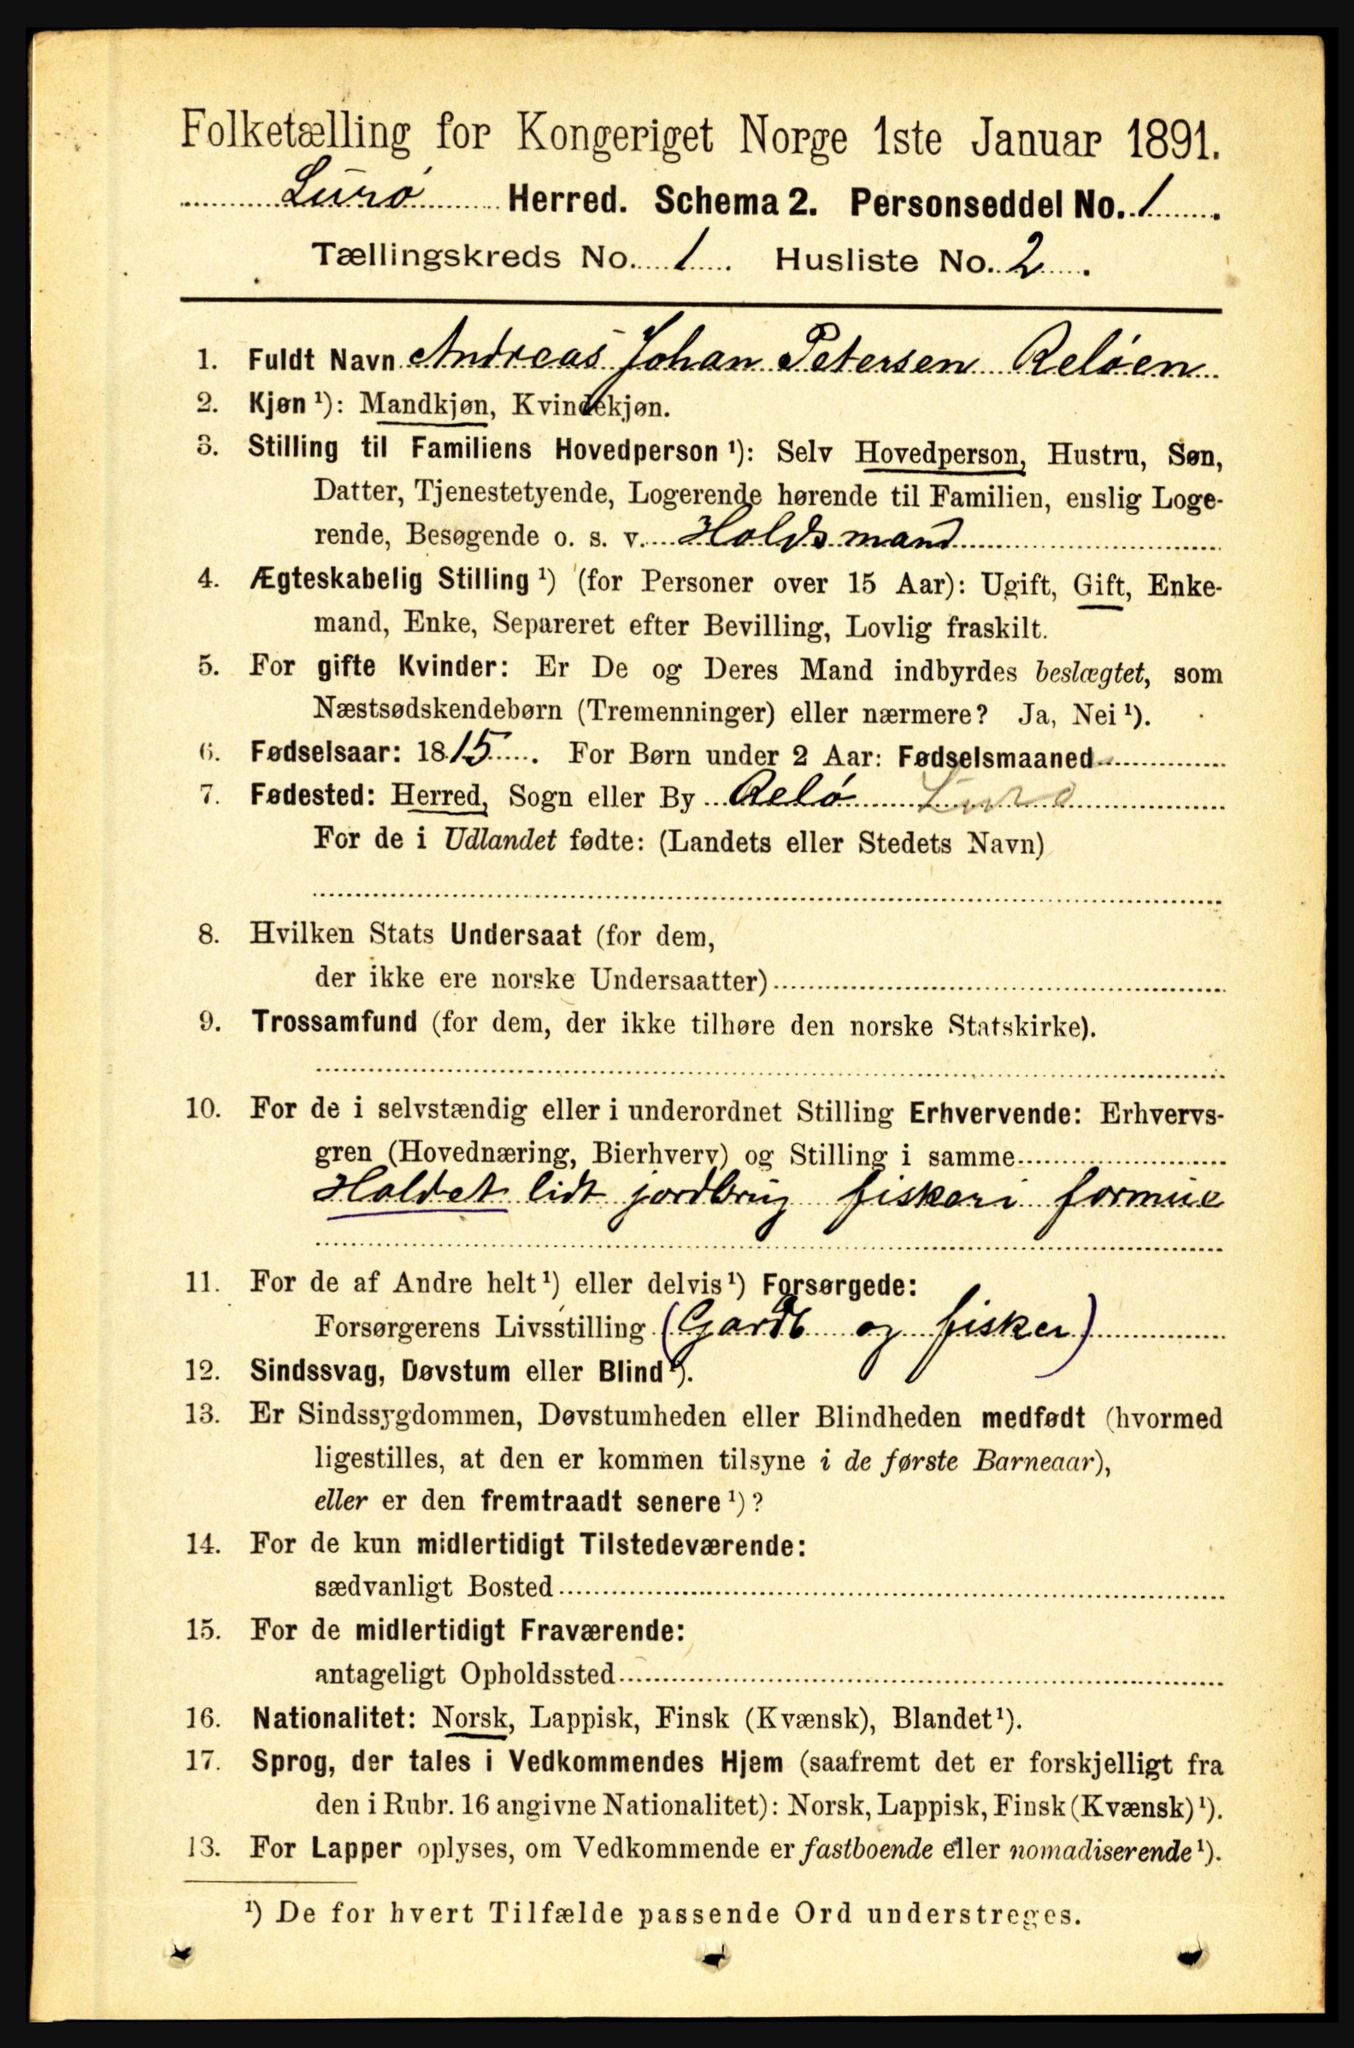 Folketælling for Kongeriget Norge 1ste Januar 1891.
Lurø Herred. Schema 2. Personseddel No. 1.
Tællingskreds No. 1. Husliste No. 2.
1. Fuldt Navn Andreas Johan Petersen Reløen
2. Kjøn ¹): Mandkjøn, Kvindekjøn.
3. Stilling til Familiens Hovedperson ¹): Selv Hovedperson, Hustru, Søn,
Datter, Tjenestetyende, Logerende hørende til Familien, enslig Loge-
rende, Besøgende o. s. v. Holdsmand
4. Ægteskabelig Stilling ¹) (for Personer over 15 Aar): Ugift, Gift, Enke-
mand, Enke, Separeret efter Bevilling, Lovlig fraskilt.
5. For gifte Kvinder: Er De og Deres Mand indbyrdes beslægtet, som
Næstsødskendebørn (Tremenninger) eller nærmere? Ja, Nei ¹).
6. Fødselsaar: 1815. For Børn under 2 Aar: Fødselsmaaned
7. Fødested: Herred, Sogn eller By Relø Lurø
For de i Udlandet fødte: (Landets eller Stedets Navn)
8. Hvilken Stats Undersaat (for dem,
der ikke ere norske Undersaatter)
9. Trossamfund (for dem, der ikke tilhøre den norske Statskirke).
10. For de i selvstændig eller i underordnet Stilling Erhvervende: Erhvervs-
gren (Hovednæring, Bierhverv) og Stilling i samme
Holdet lidt jordbrug fiskeri formue
11. For de af Andre helt ¹) eller delvis ¹) Forsørgede:
Forsørgerens Livsstilling (Gardb og fisker)
12. Sindssvag, Døvstum eller Blind ¹).
13. Er Sindssygdommen, Døvstumheden eller Blindheden medfødt (hvormed
ligestilles, at den er kommen tilsyne i de første Barneaar),
eller er den fremtraadt senere ¹)?
14. For de kun midlertidigt Tilstedeværende:
sædvanligt Bosted
15. For de midlertidigt Fraværende:
antageligt Opholdssted
16. Nationalitet: Norsk, Lappisk, Finsk (Kvænsk), Blandet ¹).
17. Sprog, der tales i Vedkommendes Hjem (saafremt det er forskjelligt fra
den i Rubr. 16 angivne Nationalitet): Norsk, Lappisk, Finsk (Kvænsk) ¹).
13. For Lapper oplyses, om Vedkommende er fastboende eller nomadiserende ¹).
¹) De for hvert Tilfælde passende Ord understreges.